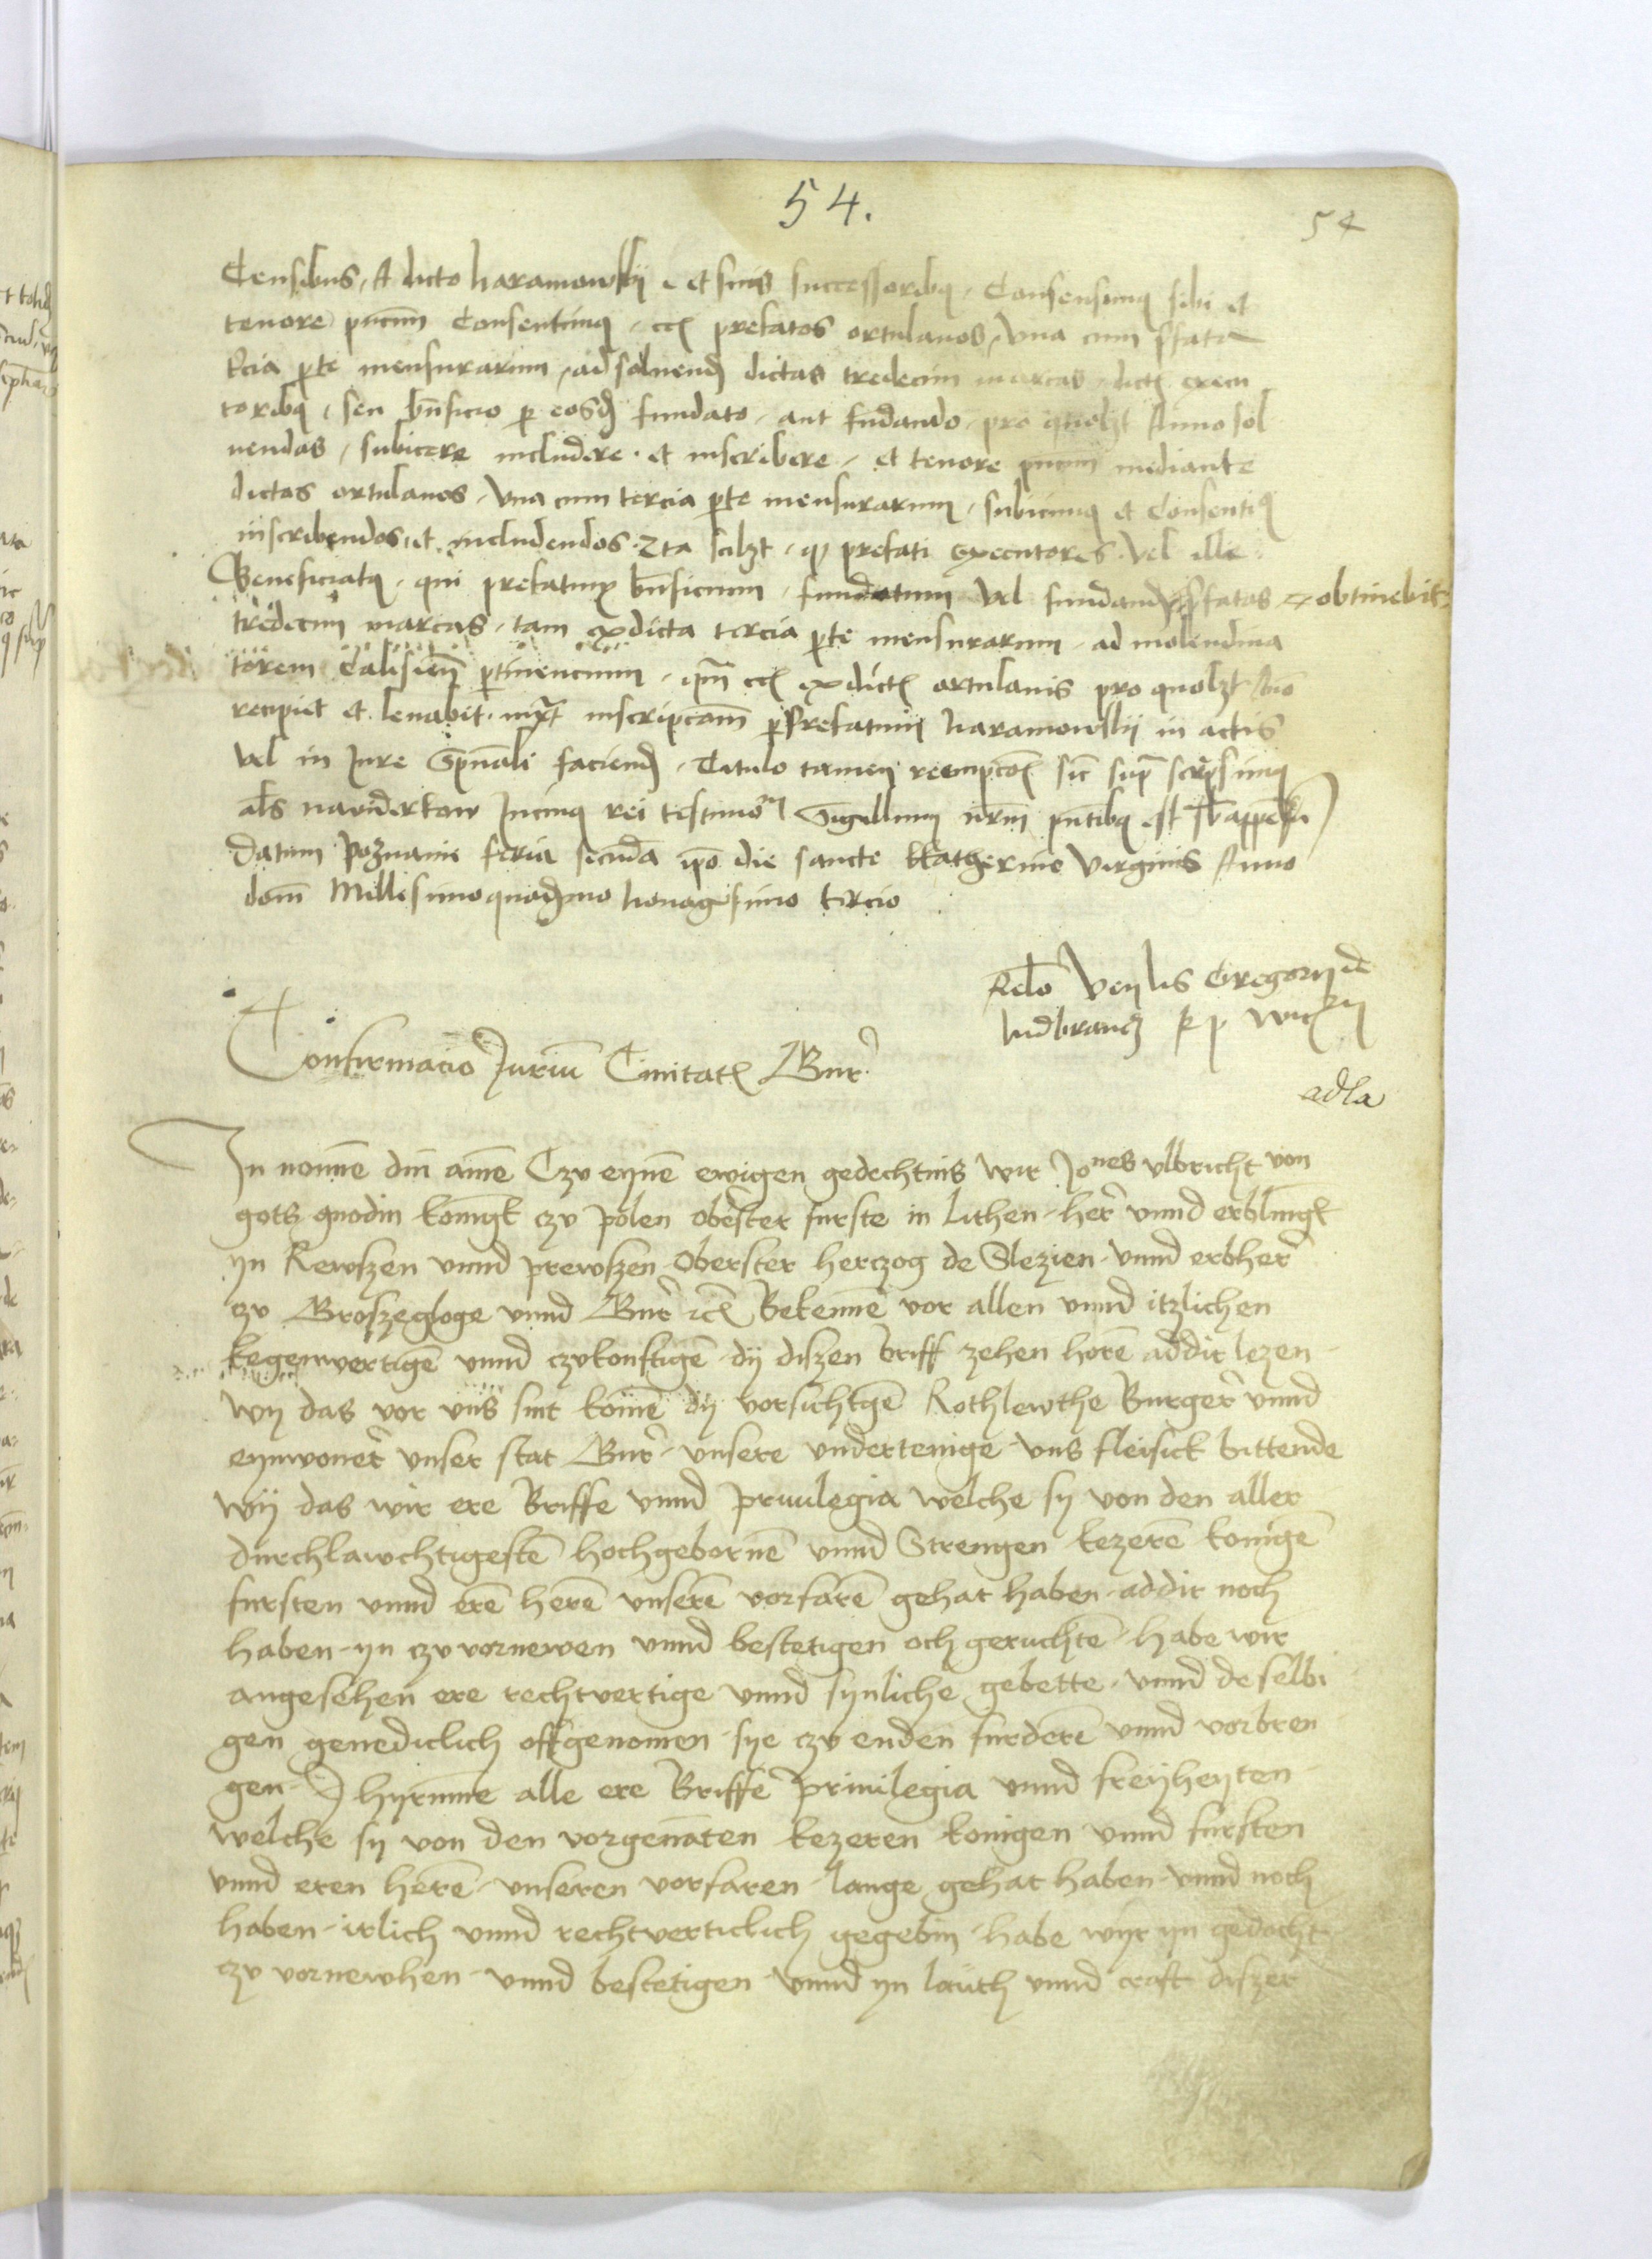 54.
54
Censibus, A dicto haramowskij et suis successoribq, Consensimq sibi et
tenore pñcim Consentimq, ecz prefatos ortulanos, Una cum pfata
tcia pte mensurarum, ad solvend dictas tredecim marcas, dictz execu
toribq, seu bñficio p eosd fundato, aut fundando, pro quolzt Anno sol
uendas, subicere includere et inscribere, et tenore pñcim mediante
dictas ortulanos, Una cum tercia pte mensurarum, subicimq et Consentiq
inscribendos, et includendos. Ita scilzt, qp prefati executores, Vel ille
Beneficiatq, qui prefatum bñficium, fundatum vel fundand pfatas obtinebit
tredecim marcas, tam ex dicta tercia pte mensurarum, ad molendina
torem Calisieñ ptinencium, qm ecz ex dictz ortulanis pro quolzt Ano
recipiet et leuabit, iuxt inscripcoem p prefatum haramowskij in actis
vel in Jure Spuali faciend, Titulo tamen reempcoz sic sup scripsimq
als naviderkow Incuiq rei testimom Sigillum nrm pntibq est sbappensu
Datum Poznanie feria secunda ipo die sancte Katherine Virginis Anno
domi Millesimoquadrmo Nonagesimo tercio
Relo Venlis Gregorij de
ludbrancz
Confirmacio Jurium Ciuitatz Bnr
adla
In nomine dni amē Czv eynē ewigen gedechtnis wir Jones Ulbricht von
gots gnodin konigk czv polen obester furste in Lithen, her vnnd erblingk
yn Rewszen vnnd prewszen Oberster herczog de Slezien, vnnd erbher
czv Groszegloge vnnd Bnr rcz Bekennē vor allen vnnd itzlichen
kegenwertigē vnnd czvkonftigē dij diszen briff zehen horē addir lezen
wy das vor vns sint komē dij vorsichtgē Rothlewthe Burger vnnd
eynwoner vnser stat Bnr, vnsere vndertenige vns fleisick bittende
wij das wir ere Briffe vnnd priuilegia welche sy von den aller
durchlawchtigestē hochgebornē vnnd Strengen kezerē konigē
fursten vnnd erē herē vnserē vorfarē gehat haben addir noch
haben yn czv vornewen vnnd bestetigen och geruchtē habe wir
angesehen ere rechtvertige vnnd synliche gebette, vnnd de selbi
gen genediclich offgenomen sye czv enden furderē vnnd vorbren
gen hyrumme alle ere Briffe priuilegia vnnd freyheyten
welche sy von den vorgenāten kezeren konigen vnnd fursten
vnnd eren herē vnseren vorfaren lange gehat haben vnnd noch
haben irlich vnnd rechtverticlich gegebin habe wyr yn gedocht
czv vornewhen vnnd bestetigen vnnd yn lauth vnnd craft diszer